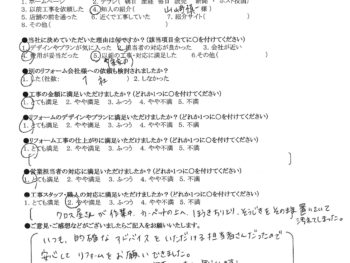 1. ホームページ 2. チラシ
3. 以前工事を依頼した 4. 知人の紹介 様
5. 店舗の前を通った 6. 近くで工事していた 7. 紹介サイト(
8. その他(
●当社に決めていただいた理由は何ですか?(該当項目全てに○を付けてください)
1. デザインやプランが気に入った 2. 担当者の対応が良かった 3. 会社が近い
4. 費用が妥当だった 5. 以前の工事・対応に満足した 6. その他( )
●別のリフォーム会社様への依頼も検討されましたか?
1. した(社数: 1 社) 2. しなかった
●工事の金額に満足いただけましたか?(どれか1つに○を付けてください)
1. とても満足 2. やや満足 3. ふつう 4. やや不満 5. 不満
●リフォームのデザインやプランに満足いただけましたか?(どれか1つに○を付けてください)
1. とても満足 2. やや満足 3. ふつう 4. やや不満 5. 不満
●リフォーム工事の仕上がりに満足いただけましたか?(どれか1つに○を付けてください)
1. とても満足 2. やや満足 3. ふつう 4. やや不満 5. 不満
●営業担当者の対応に満足いただけましたか?(どれか1つに○を付けてください)
1. とても満足 2. やや満足 3. ふつう 4. やや不満 5. 不満
●工事スタッフ・職人の対応に満足いただけましたか?(どれか1つに○を付けてください)
1. とても満足 2. やや満足 3. ふつう 4. やや不満 5. 不満
クロス屋さんが作業中、カーペットの上へ、ほうきちりとり、ぞうきをそのまま置いていて
汚れてしまった。
●ご意見・ご感想などがございましたらご記入をお願いいたします。
いつも、的確なアドバイスをいただける担当者さんだったので
安心してリフォームをお願いできました。